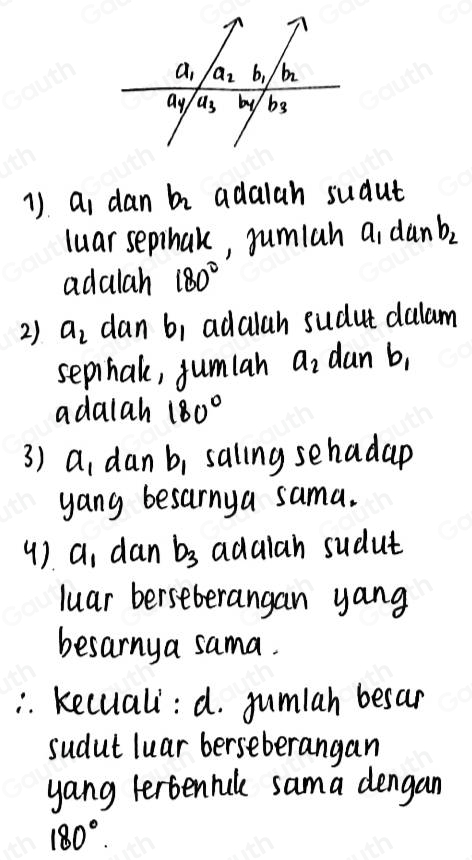 a₁ a₂ b₁ b₂
a₄ a₃ b₄ b₃
1) a₁ dan b₂ adalah sudut
luar sepihak, jumlah a₁ dan b₂
adalah 180°
2) a₂ dan b₁ adalah sudut dalam
sepihak, jumlah a₂ dan b₁
adalah 180°
3) a₁ dan b₁ saling sehadap
yang besarnya sama.
4) a₁ dan b₃ adalah sudut
luar berseberangan yang
besarnya sama.
∴ kecuali : d. jumlah besar
sudut luar berseberangan
yang terbentuk sama dengan
180°.